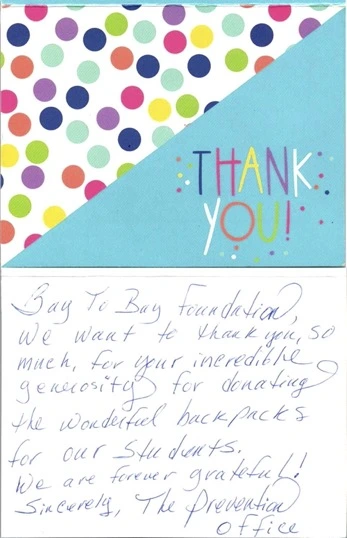 THANK
YOU!
Bay To Bay Foundation,
We want to thank you, so
much, for your incredible
generosity for donating
the wonderful backpacks
for our students.
We are forever grateful!
Sincerely, The Prevention
Office